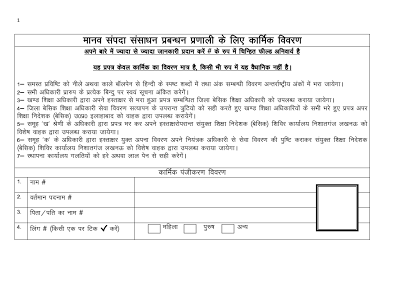 1
मानव संपदा संसाधन प्रबन्धन प्रणाली के लिए कार्मिक विवरण
अपने बारे में ज्यादा से ज्यादा जानकारी प्रदान करें # के रुप में चिन्हित फील्ड अनिवार्य है
यह प्रपत्र केवल कार्मिक का विवरण मात्र है, किसी भी रुप में यह वैधानिक नहीं है।
1— समस्त प्रविष्टि को नीले अथवा काले बॉलपेन से हिन्दी के स्पष्ट शब्दों में तथा अंक सम्बन्धी विवरण अन्तर्राष्ट्रीय अंकों में भरा जायेगा।
2— सभी अधिकारी प्रारुप के प्रत्येक बिन्दु पर स्वयं सूचना अंकित करेंगे।
3— खण्ड शिक्षा अधिकारी द्वारा अपने हस्ताक्षर से भरा हुआ प्रपत्र सम्बन्धित जिला बेसिक शिक्षा अधिकारी को उपलब्ध कराया जायेगा।
4— जिला बेसिक शिक्षा अधिकारी सेवा विवरण सत्यापन के उपरान्त त्रुटियों को सही करते हुए खण्ड शिक्षा अधिकारियों के सभी भरे हुए प्रपत्र अपर
शिक्षा निदेशक (बेसिक) उ0प्र0 इलाहाबाद को वाहक द्वारा उपलब्ध करायेंगे।
5— समूह 'ख' श्रेणी के अधिकारी द्वारा प्रपत्र भर कर अपने हस्ताक्षरोपरान्त संयुक्त शिक्षा निदेशक (बेसिक) शिविर कार्यालय निशातगंज लखनऊ को
विशेष वाहक द्वारा उपलब्ध कराया जायेगा।
6— समूह 'क' के अधिकारी द्वारा हस्ताक्षर युक्त अपना विवरण अपने नियंत्रक अधिकारी से सेवा विवरण की पुष्टि कराकर संयुक्त शिक्षा निदेशक
(बेसिक) शिविर कार्यालय निशातगंज लखनऊ को विशेष वाहक द्वारा उपलब्ध कराया जायेगा।
7— स्थापना कार्यालय गलतियों को हरे अथवा लाल पेन से सही करेंगे।
कार्मिक पंजीकरण विवरण
1. नाम #
2. वर्तमान पदनाम #
3. पिता/पति का नाम #
4. लिंग # (किसी एक पर टिक ✔ करें) महिला पुरुष अन्य